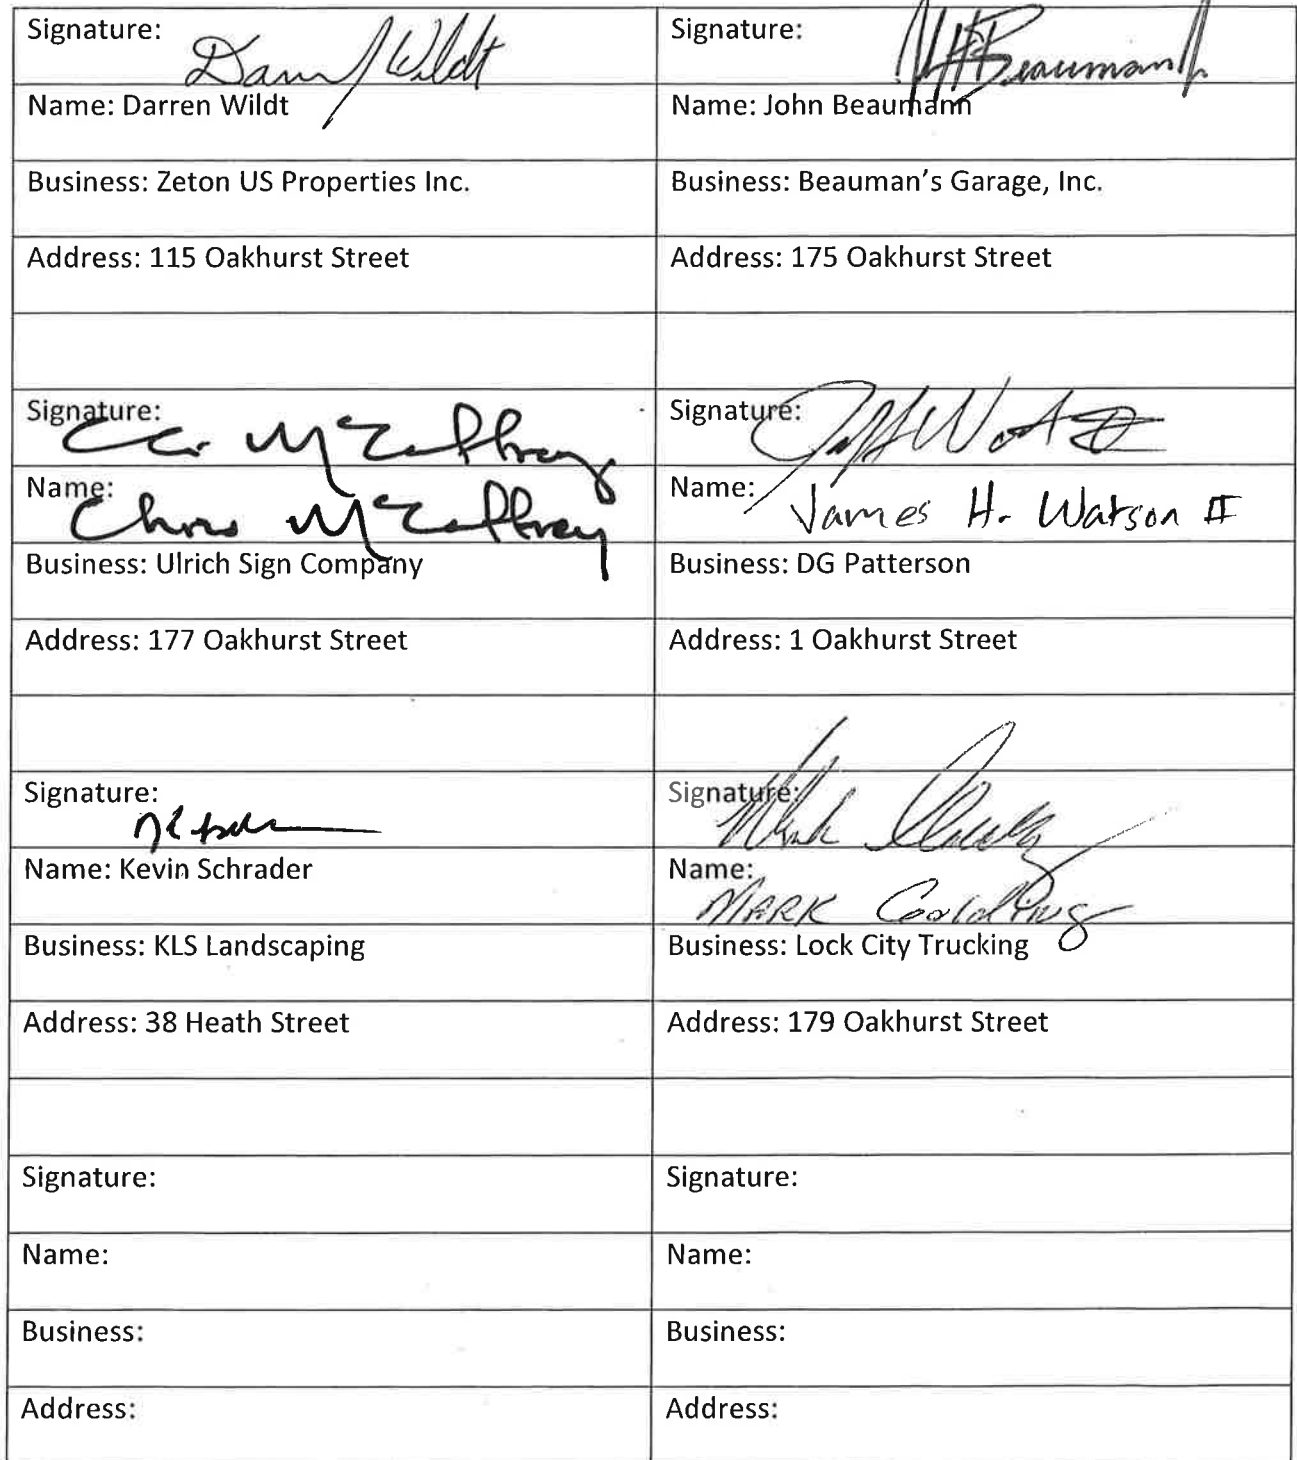 Signature: Darren Wildt
Signature: Beaumann Jr.
Name: Darren Wildt
Name: John Beaumann
Business: Zeton US Properties Inc.
Business: Beauman's Garage, Inc.
Address: 115 Oakhurst Street
Address: 175 Oakhurst Street
Signature: McCaffrey
Signature:
Name: Chris McCaffrey
Name: James H. Watson II
Business: Ulrich Sign Company
Business: DG Patterson
Address: 177 Oakhurst Street
Address: 1 Oakhurst Street
Signature:
Signature: Mark
Name: Kevin Schrader
Name: MARK Goolding
Business: KLS Landscaping
Business: Lock City Trucking
Address: 38 Heath Street
Address: 179 Oakhurst Street
Signature:
Signature:
Name:
Name:
Business:
Business:
Address:
Address: